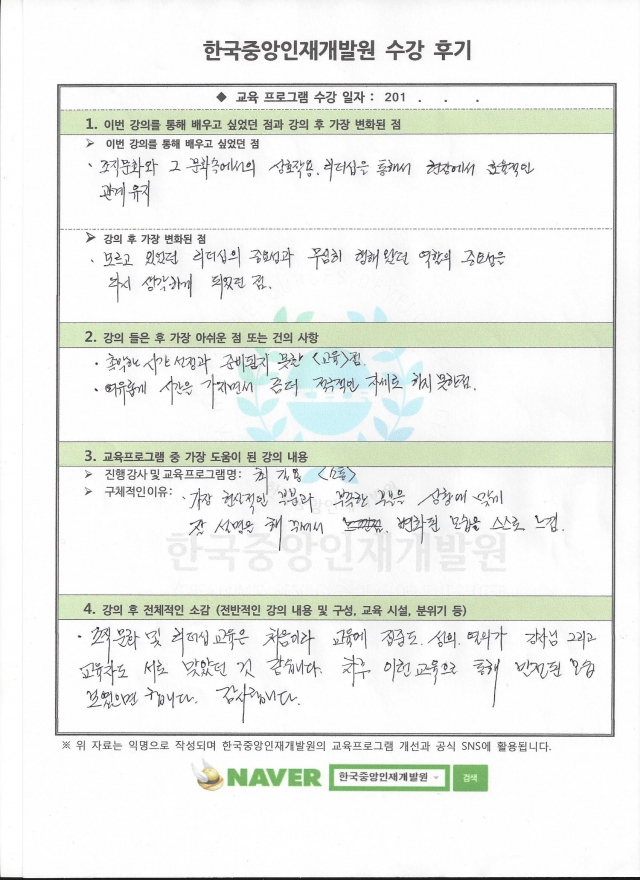 한국중앙인재개발원 수강 후기
◆ 교육 프로그램 수강 일자 : 201 . . .
1. 이번 강의를 통해 배우고 싶었던 점과 강의 후 가장 변화된 점
➢ 이번 강의를 통해 배우고 싶었던 점
· 조직문화와 그 문화속에서의 상호작용. 리더십을 통해서 현장에서 효율적인
관계유지
➢ 강의 후 가장 변화된 점
· 모르고 있었던 리더십의 중요성과 무심히 행해 왔던 역할의 중요성을
다시 생각하게 되었던 점.
2. 강의 들은 후 가장 아쉬운 점 또는 건의 사항
· 촉박한 시간 선정과 준비되지 못한 <교육>점
· 여유롭게 시간을 가지면서 좀더 적극적인 자세로 하지 못한점.
3. 교육프로그램 중 가장 도움이 된 강의 내용
➢ 진행강사 및 교육프로그램명: 최 김용 <소통>
➢ 구체적인이유: · 가장 현실적인 부분과 부족한 부분을 상황에 맞게
잘 설명을 해 주셔서 변화된 모습을 스스로 느낌.
4. 강의 후 전체적인 소감 (전반적인 강의 내용 및 구성, 교육 시설, 분위기 등)
· 조직문화 및 리더십교육은 처음이라 교육에 집중도. 성의. 열의가 강사님 그리고
교육자도 서로 맞았던 것 같습니다. 차후 이런 교육으로 통해 발전된 모습
보였으면 합니다. 감사합니다.
한국중앙인재개발원
※ 위 자료는 익명으로 작성되며 한국중앙인재개발원의 교육프로그램 개선과 공식 SNS에 활용됩니다.
NAVER 한국중앙인재개발원 검색